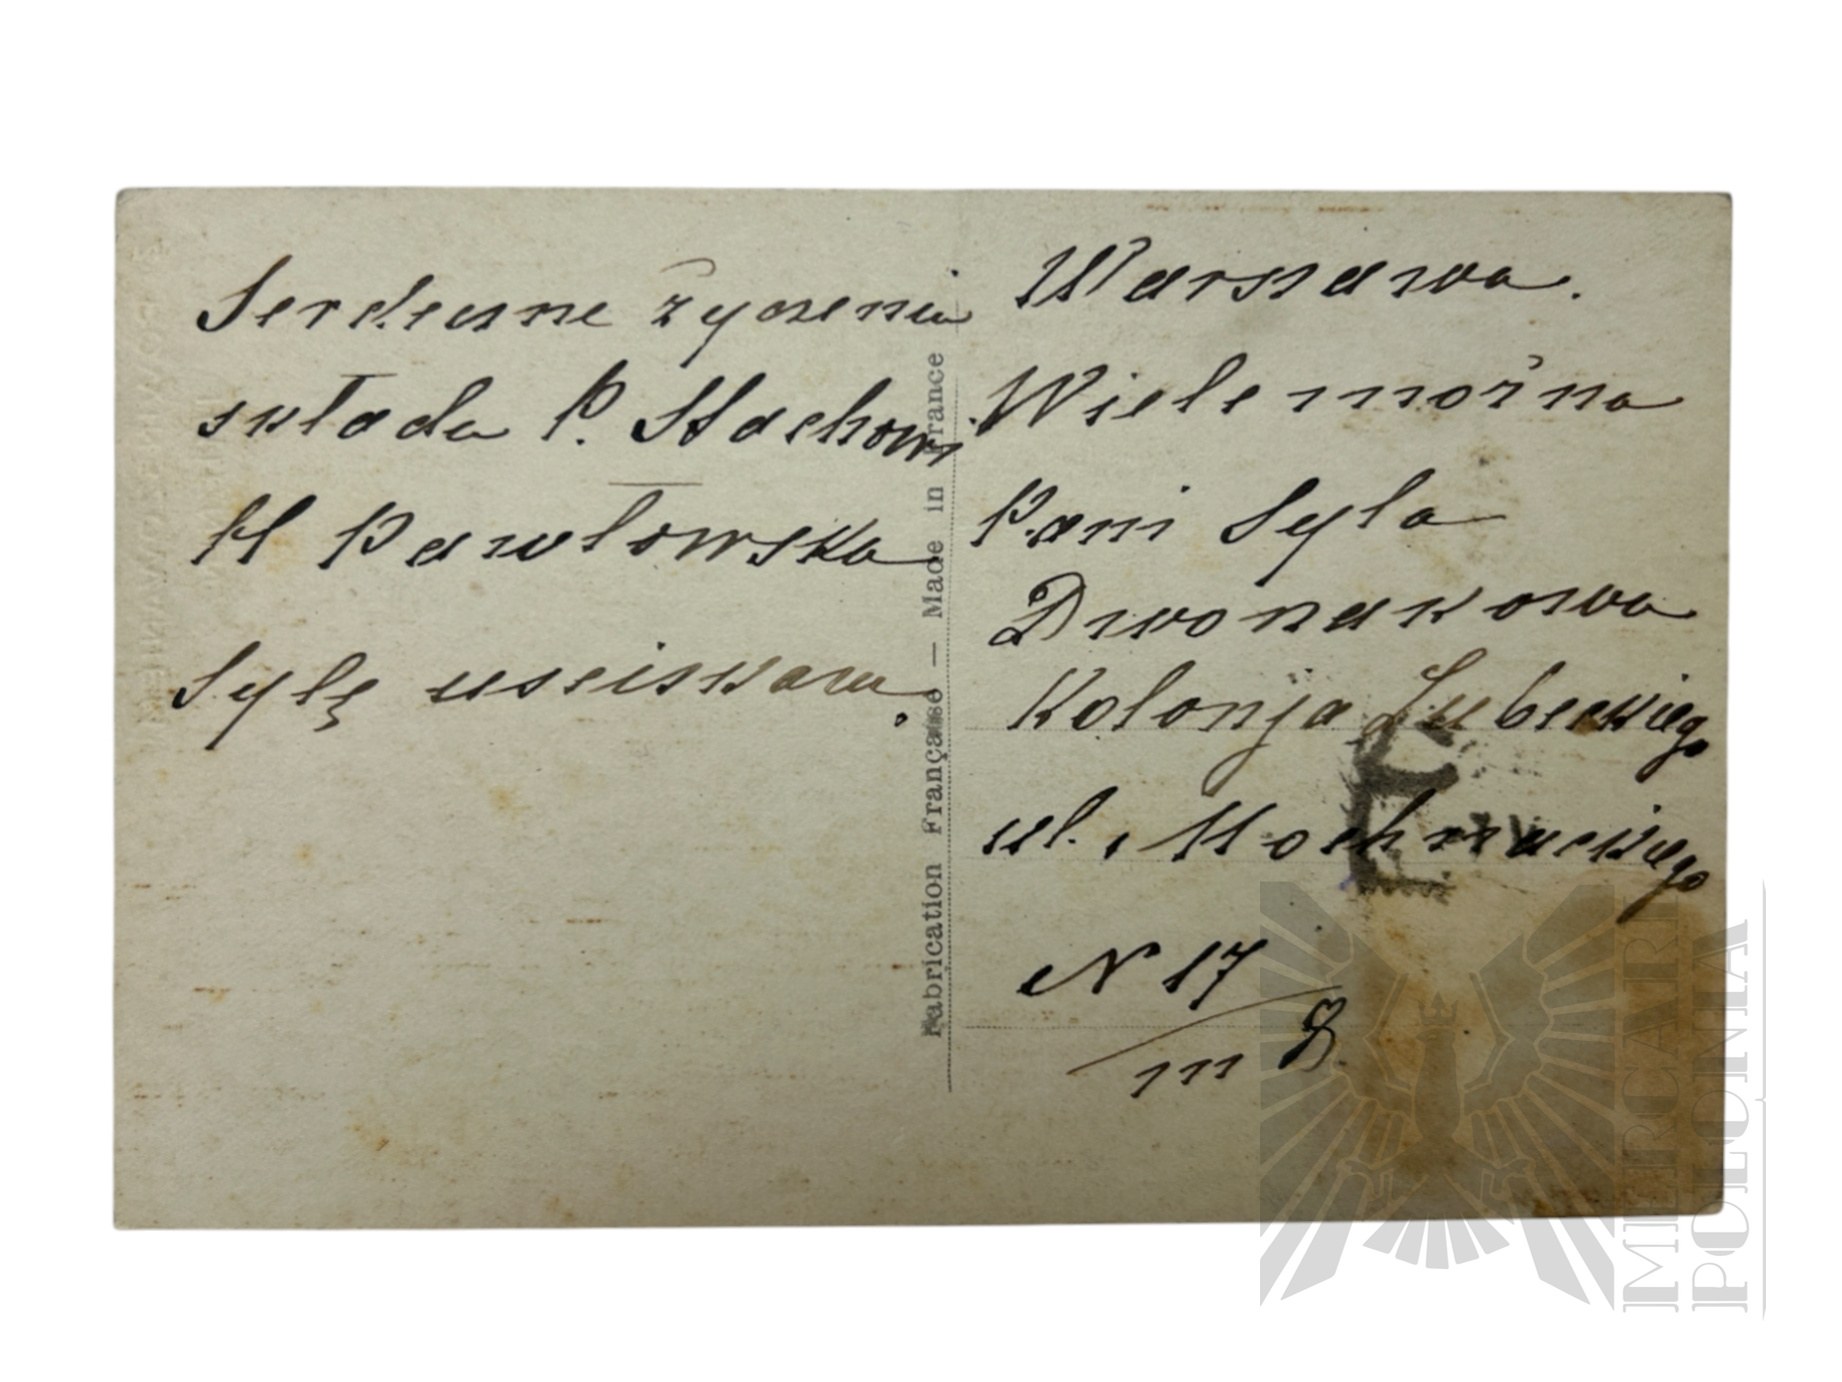 Serdeczne życzenia
składa P. Stachowi
H Pawłowska
Sylę usciskam.
Fabrication Française — Made in France
Warszawa.
Wielemożna
Pani Syla
Dwonakowa
Kolonja Lubeckiego
ul. Mochnackiego
N 17
m 8.
MERCARI
POLONIA